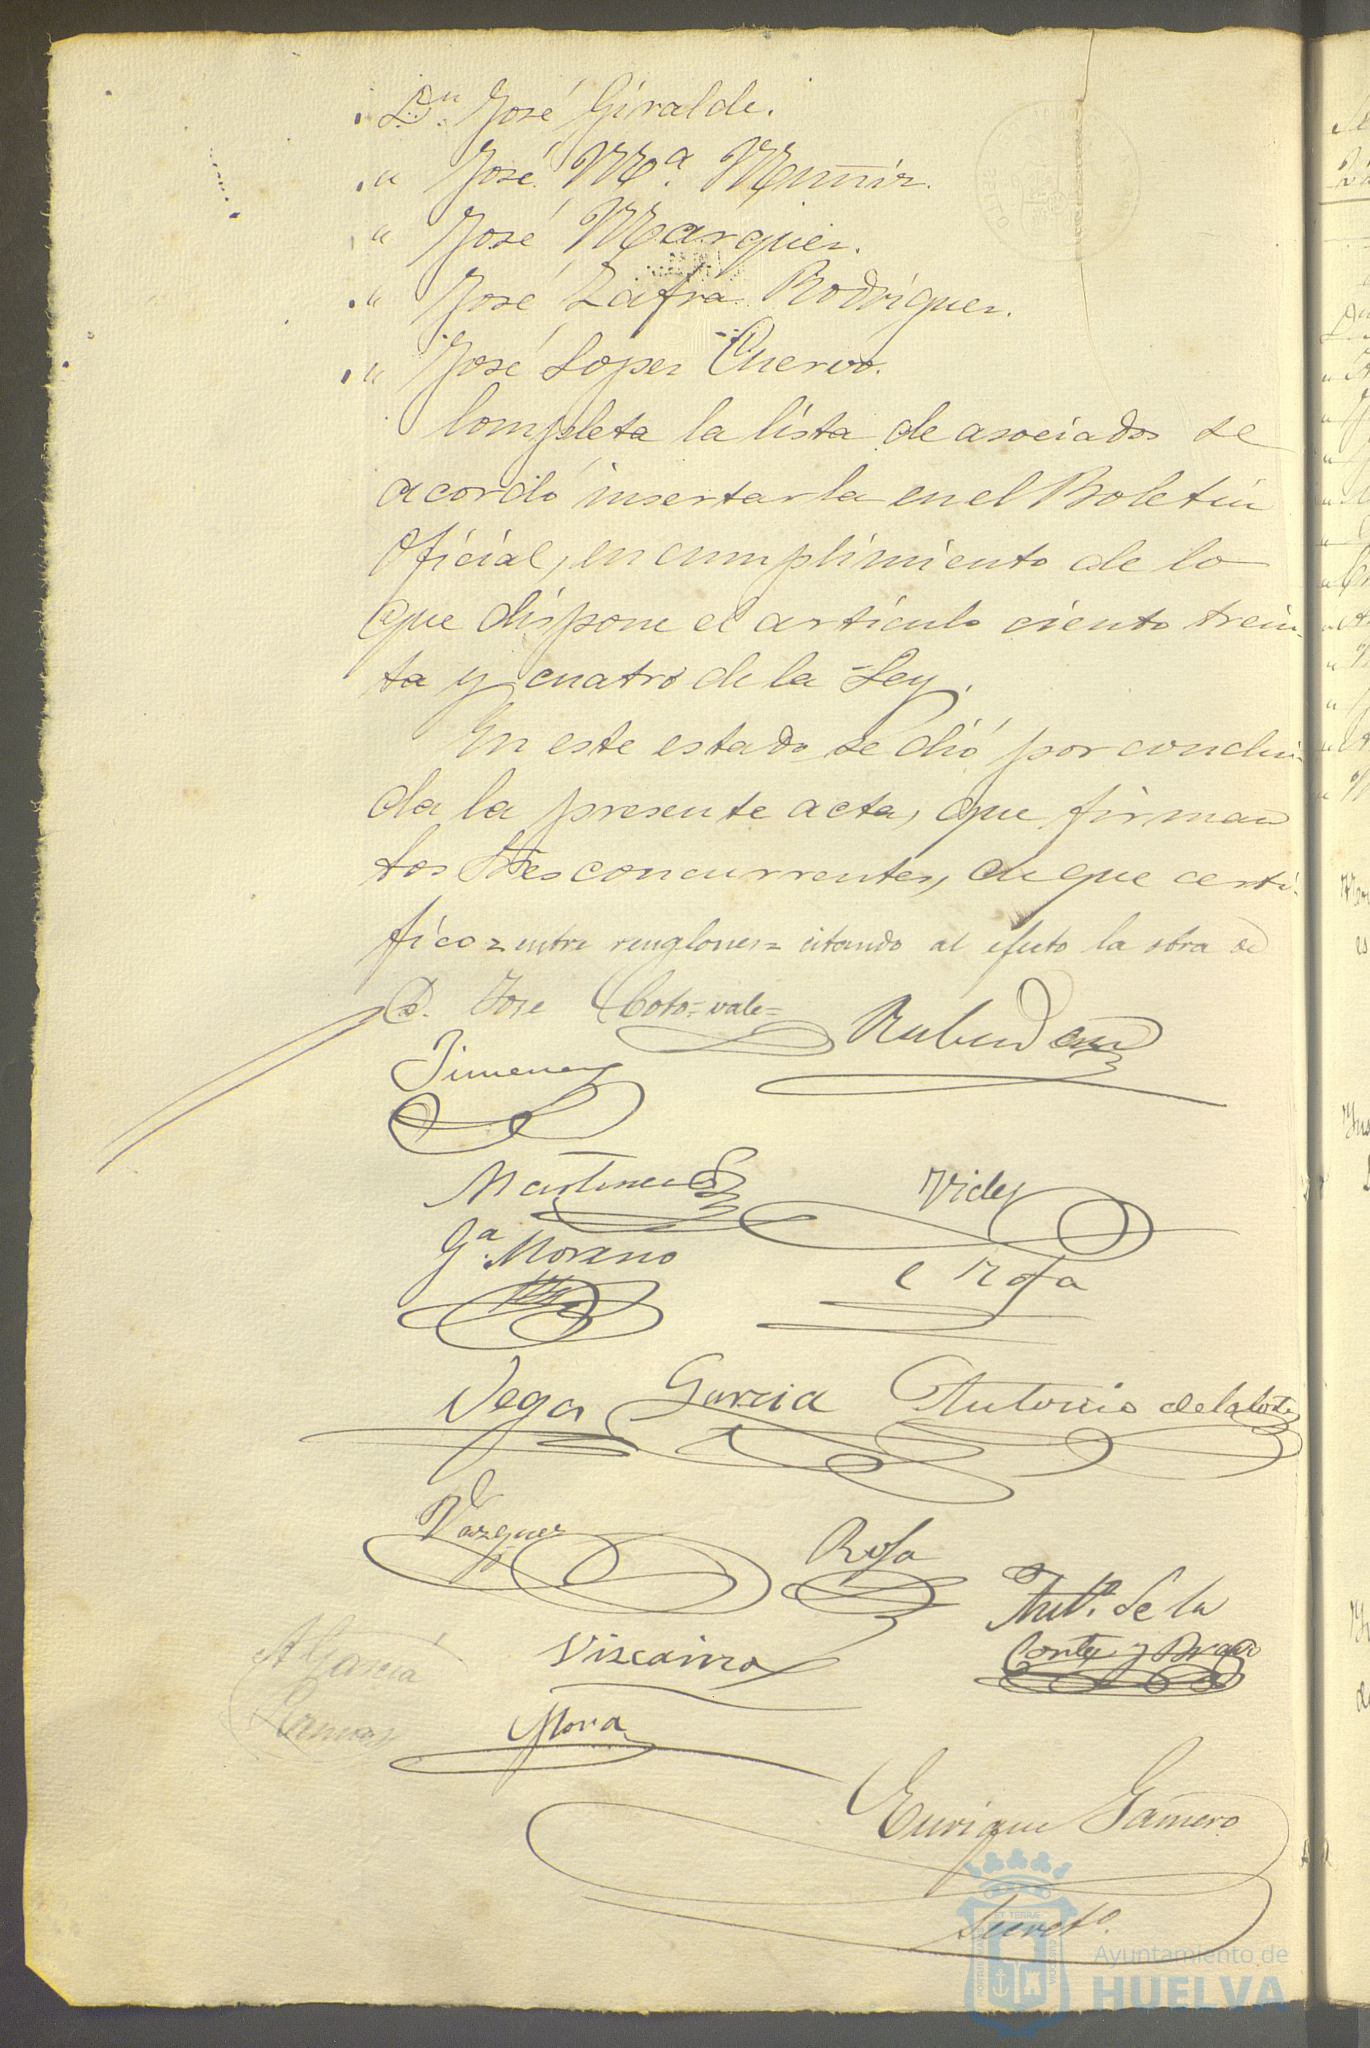 Dn. José Giralde.
" José Mª. Muñiz.
" José Marquez.
" José Zafra Rodriguez.
" José Lopez Cuervo.
Completa la lista de asociados se
acordó insertarla en el Boletin
Oficial, en cumplimiento de lo
que dispone el articulo ciento trein-
ta y cuatro de la Ley.
En este estado se dió por conclui-
da la presente acta, que firman
los Sres concurrentes, de que certi-
fico = entre renglones = citando al efecto la obra de
D. José Coto = vale =
Jimenez
Martinez
Gª. Moreno
Vega Garcia Antonio de la Corte
Vazquez
Rofa
Antº. de la
Corte y Bravo
A. Garcia
Ramos
Vizcaino
Mora
Enrique Gamero
Secretº.
Ayuntamiento de
HUELVA